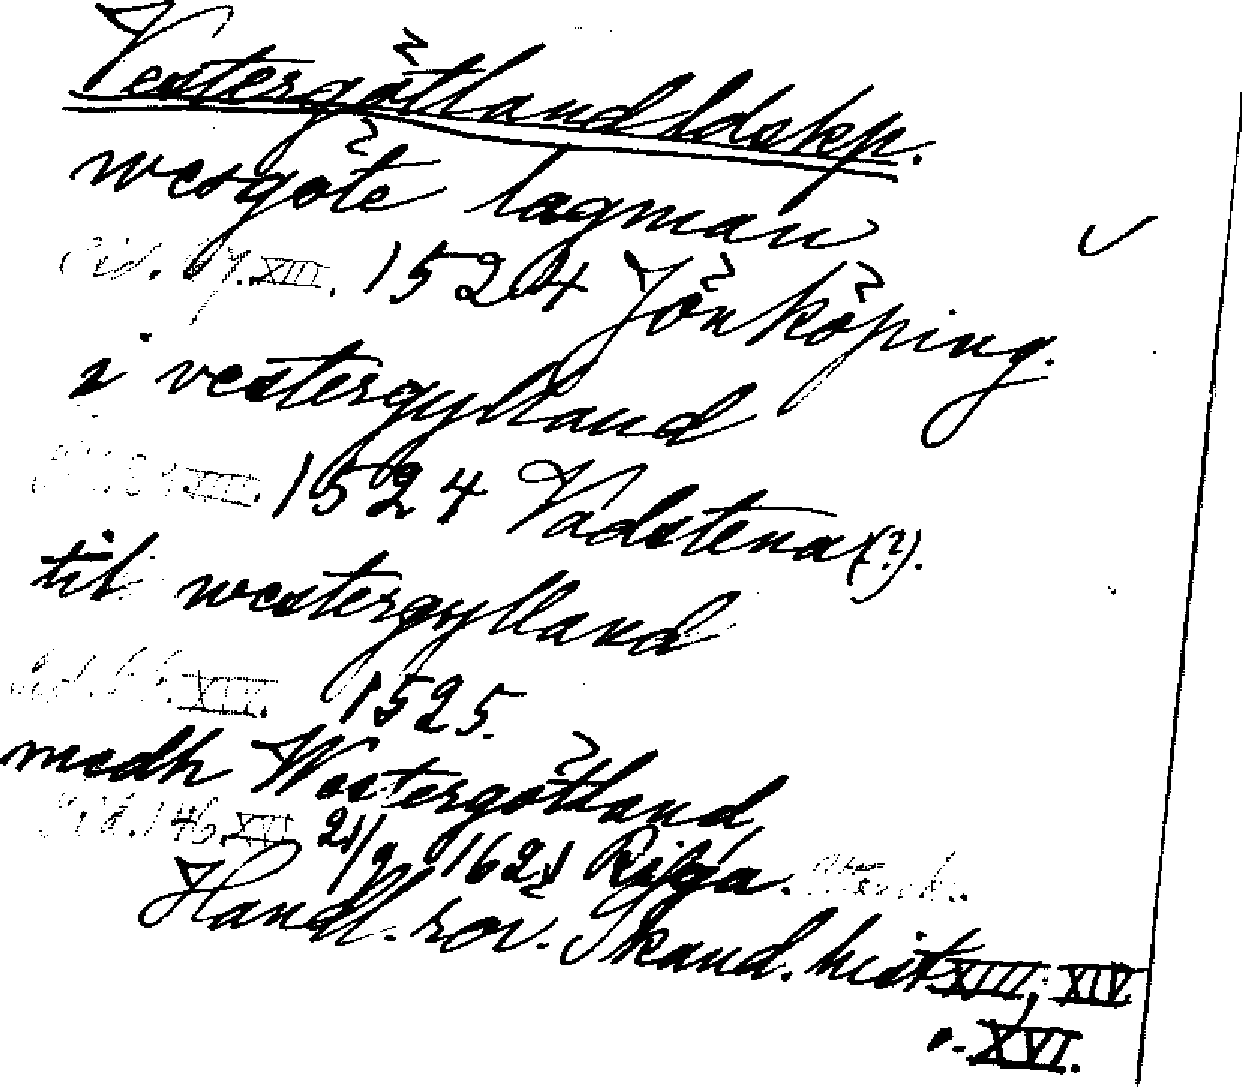 Vestergötland ldskp.
wesgöte lagman
sid. 67. XIII. 1524 Jönköping.
i vestergylland
XIII. 1524 Vadstena (?).
til westergylland
sid. 66. XIV. 1525.
medh Westergötland
sid. 146. XVI 21/9 1621 Riga.
Handl. rör. Skand. hist. XIII, XIV
o. XVI.